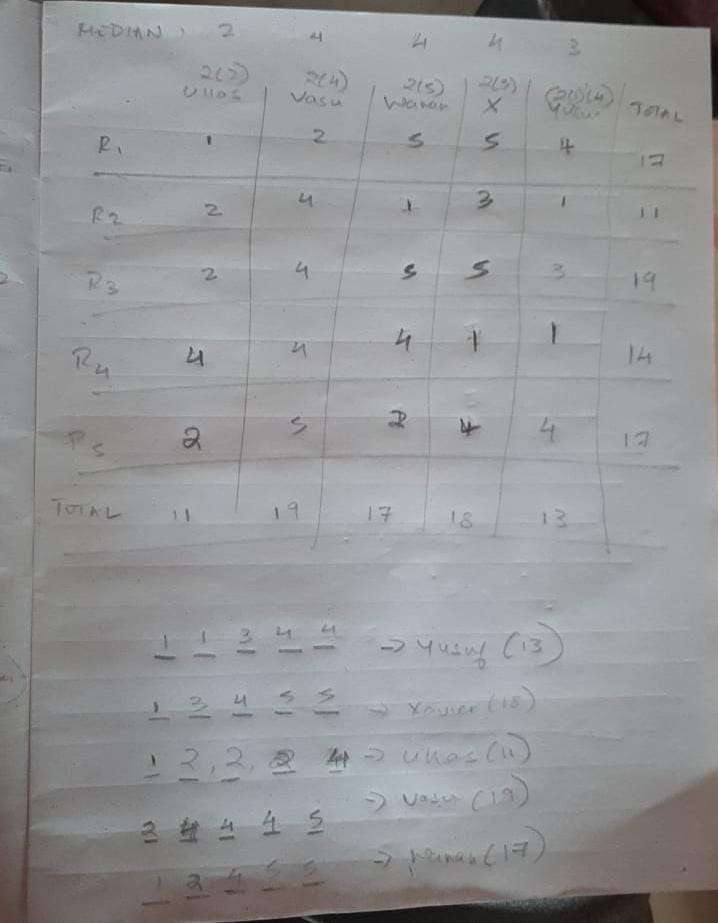 MEDIAN: 2 4 4 4 3
2(2) 2(4) 2(5) 2(5) (2(1)(4)
Ullas Vasu Wanan X Yusuf TOTAL
R1 1 2 5 5 4 17
R2 2 4 1 3 1 11
R3 2 4 5 5 3 19
R4 4 4 4 1 1 14
R5 2 5 2 4 4 17
TOTAL 11 19 17 18 13
1 1 3 4 4 -> Yusuf (13)
1 3 4 5 5 -> Xavier (18)
1 2, 2, 2 4 -> Ullas (11)
2 4 4 4 5 -> Vasu (19)
1 2 4 5 5 -> (17)